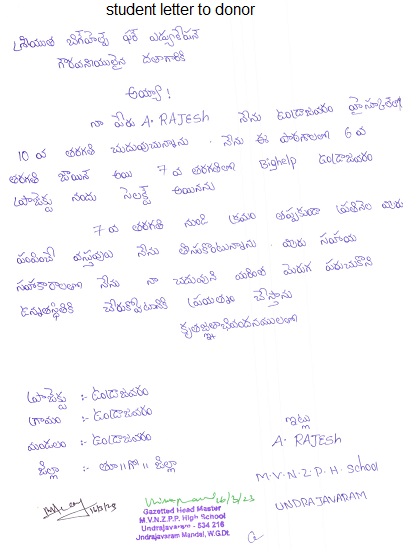 student letter to donor
శ్రీయుత బిగ్‌హెల్ప్ ఫర్ ఎడ్యుకేషన్
గౌరవనీయులైన దాతగారికి
అయ్యా!
నా పేరు A. RAJESH నేను ఉండ్రాజవరం హైస్కూల్లో
10 వ తరగతి చదువుచున్నాను. నేను ఈ పాఠశాలలో 6 వ
తరగతి జాయిన్ అయి 7 వ తరగతిలో Bighelp ఉండ్రాజవరం
ప్రాజెక్టు నందు సెలక్ట్ అయినను
7 వ తరగతి నుండి క్రమం తప్పకుండా ప్రతినెల మీరు
పంపించే వస్తువులు నేను తీసుకొంటున్నాను. మీరు సహాయ
సహకారాలతో నేను నా చదువుని మెరుగు పరుచుకొని
ఉన్నతస్థితికి చేరుకోవటానికి ప్రయత్నం చేస్తాను
కృతజ్ఞతాభివందనములతో
ప్రాజెక్టు :- ఉండ్రాజవరం
గ్రామం :- ఉండ్రాజవరం
మండలం :- ఉండ్రాజవరం
జిల్లా :- తూ||గో|| జిల్లా
ఇట్లు
A. RAJESH
M.V.N.Z.P.H. School
UNDRAJAVARAM
16/3/23
Gazetted Head Master
M.V.N.Z.P.P. High School
Undrajavaram - 534 216
Undrajavaram Mandal, W.G.Dt.